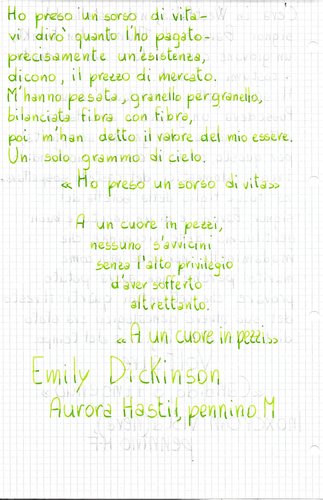 Ho preso un sorso di vita-
vi dirò quanto l'ho pagato-
precisamente un'esistenza,
dicono, il prezzo di mercato.
M'hanno pesata, granello per granello,
bilanciata fibra con fibra,
poi m'han detto il valore del mio essere.
Un solo grammo di cielo.
«Ho preso un sorso di vita»
A un cuore in pezzi,
nessuno s'avvicini
senza l'alto privilegio
d'aver sofferto
altrettanto.
«A un cuore in pezzi»
Emily Dickinson
Aurora Hastil, pennino M